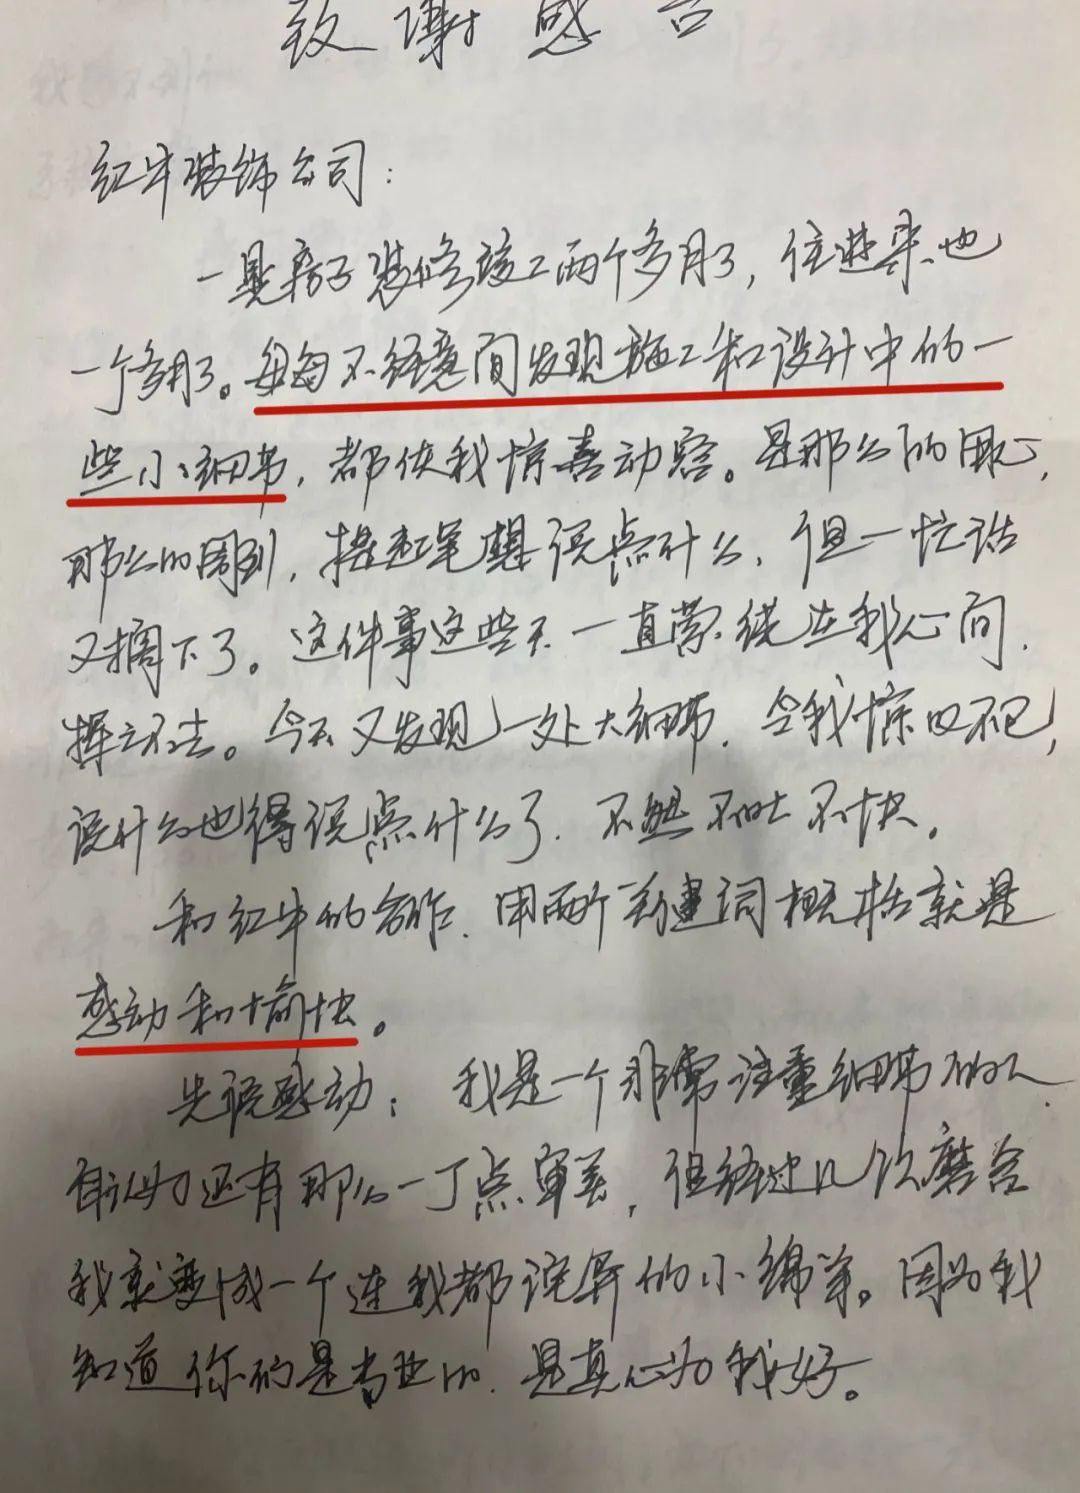 致谢感言
红牛装饰公司：
一晃房子装修竣工两个多月了，住进来也
一个多月了。每每不经意间发现施工和设计中的一
些小细节，都使我惊喜动容。是那么的用心，
那么的周到，提起笔想说点什么，但一忙活
又搁下了。这件事这些天一直萦绕在我心间，
挥之不去。今天又发现一处大细节，令我惊叹不已，
说什么也得说点什么了，不然不吐不快。
和红牛的合作，用两个关键词概括就是
感动和愉快。
先说感动：我是一个非常注重细节的人，
自认为还有那么一丁点审美，但经过几次磨合
我就变成一个连我都诧异的小绵羊。因为我
知道你们是专业的，是真心为我好。